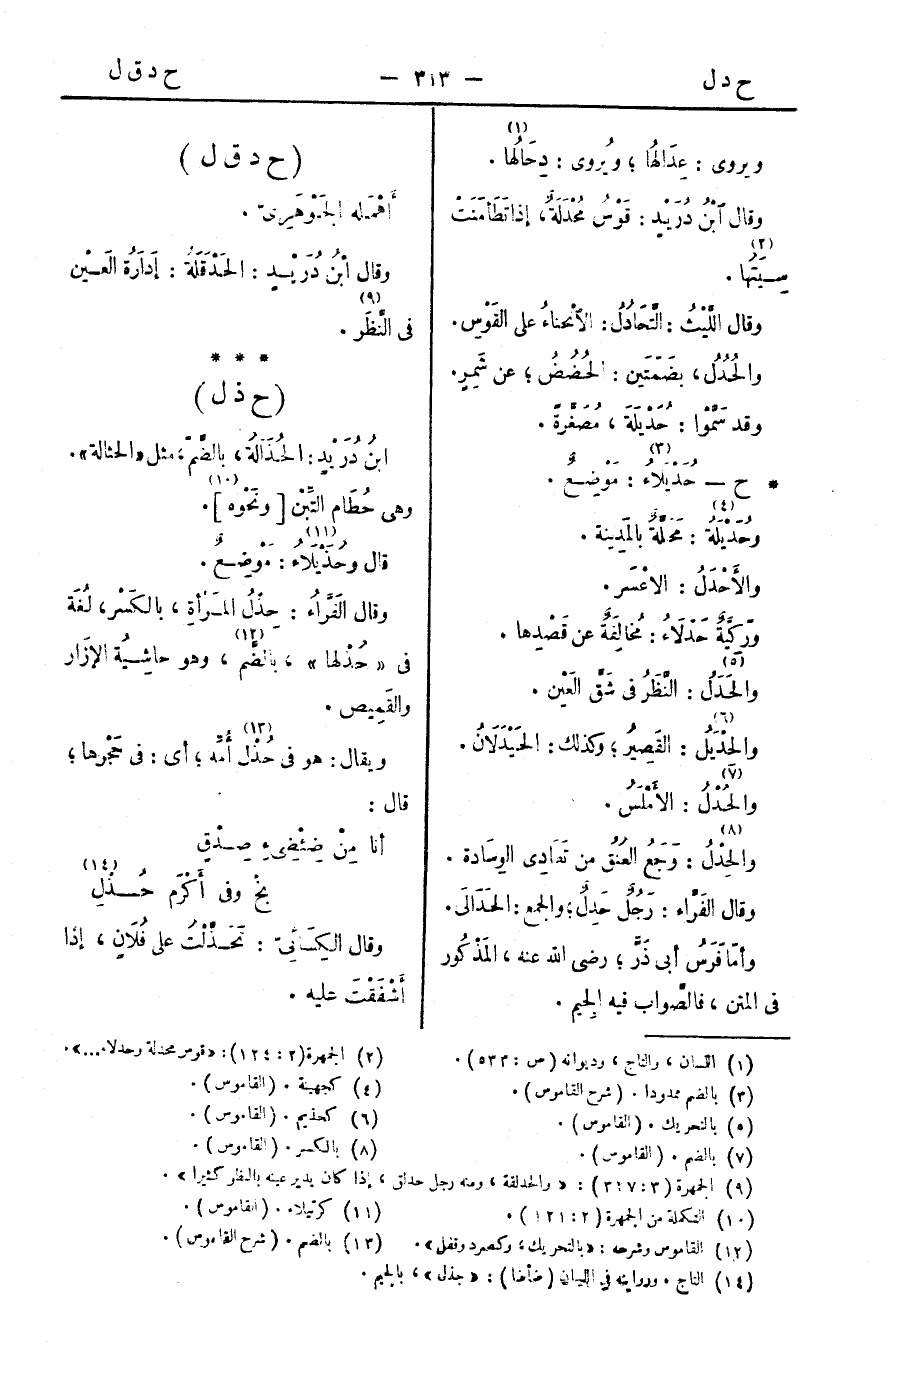 ح د ل
— ٣١٣ —
ح د ق ل
ويروى : عِدَالُها ؛ ويُروى : دِحَالُها (١) .
وقال ابْنُ دُرَيْدٍ : قَوْسٌ مُحْدَلَةٌ ، إذا تَطَامَنَتْ
سِيَتُها (٢) .
وقال اللَّيْثُ : التَّحَادُلُ : الانْحناءُ على القَوْسِ .
والحُدُلُ ، بضَمّتَين : الحُضُضُ ؛ عن شَمِرٍ .
وقد سَمَّوْا : حُدَيْلَةَ ، مُصَغَّرَةً .
* ح — حُدَيْلَاءُ (٣) : مَوْضِعٌ .
وحُدَيْلَةُ (٤) : مَحَلَّةٌ بالمَدِينة .
والأَحْدَلُ : الاعْسَر .
ورَكِيَّةٌ حَدْلَاءُ : مُخالِفَةٌ عن قَصْدِها .
والحَدَلُ (٥) : النَّظَرُ فى شَقّ العَيْن .
والحِدْيَلُ (٦) : القَصِيرُ ؛ وكذلك : الحَيْدَلَانُ .
والحُدْلُ (٧) : الأَمْلَسُ .
والحِدْلُ (٨) : وَجَعُ العُنُقِ من تَعَادِى الوِسَادة .
وقال الفَرَّاء : رَجُلٌ حَدِلٌ ؛ والجمع : الحَدَالَى .
وأمّا فَرَسُ أبى ذَرٍّ ؛ رضى الله عنه ، المَذْكُور
فى المتن ، فالصَّواب فيه الجِيم .
( ح د ق ل )
أَهْمَله الجَوْهَرِىّ .
وقال ابْنُ دُرَيْدٍ : الحَدْقَلَةُ : إدَارَةُ العَيْن
فى النَّظَر (٩) .
* * *
( ح ذ ل )
ابنُ دُرَيْدٍ : الحُذَالَةُ ، بالضَّمّ ، مثل «الحثالة» .
وهى حُطَام التِّبْن [ ونَحْوه ] (١٠) .
قال وحُذَيْلَاءُ (١١) : مَوْضِعٌ .
وقال الفَرَّاءُ : حِذْلُ المَرْأة ، بالكَسْر ، لُغَة
فى « حُذْلها » ، بالضَّم (١٢) ، وهو حاشِيَةُ الإزَار
والقَمِيص .
ويقال : هو فى حُذْل أُمّه (١٣) ؛ أى : فى حَجْرها ؛
قال :
أنا مِنْ ضِئْضِىءِ صِدْقٍ
بَخْ وفى أَكْرَم حُذْلِ (١٤)
وقال الكِسَائِىّ : تَحَذَّلْتُ على فُلَانٍ ، إذا
أَشْفَقْتَ عليه .
(١) اللسان ، والتاج ، وديوانه (ص : ٥٣٣) .
(٢) الجمهرة (٢ : ١٢٤) : «قوس محدلة وحدلاء ...» .
(٣) بالضم ممدودا . (شرح القاموس) .
(٤) كجهينة . (القاموس) .
(٥) بالتحريك . (القاموس) .
(٦) كحذيم . (القاموس) .
(٧) بالضم . (القاموس) .
(٨) بالكسر . (القاموس) .
(٩) الجمهرة (٣ : ٣٢٧) : « والحدلقة ، ومنه رجل حدالق ، إذا كان يدير عينه بالنظر كثيرا » .
(١٠) التكملة من الجمهرة (٢ : ١٢١) .
(١١) كرتيلاء . (القاموس) .
(١٢) القاموس وشرحه : «بالتحريك ، وكصرد وقفل» .
(١٣) بالضم . (شرح القاموس) .
(١٤) التاج . وروايته فى اللسان (ضأضأ) : « جذل » ، بالجيم .